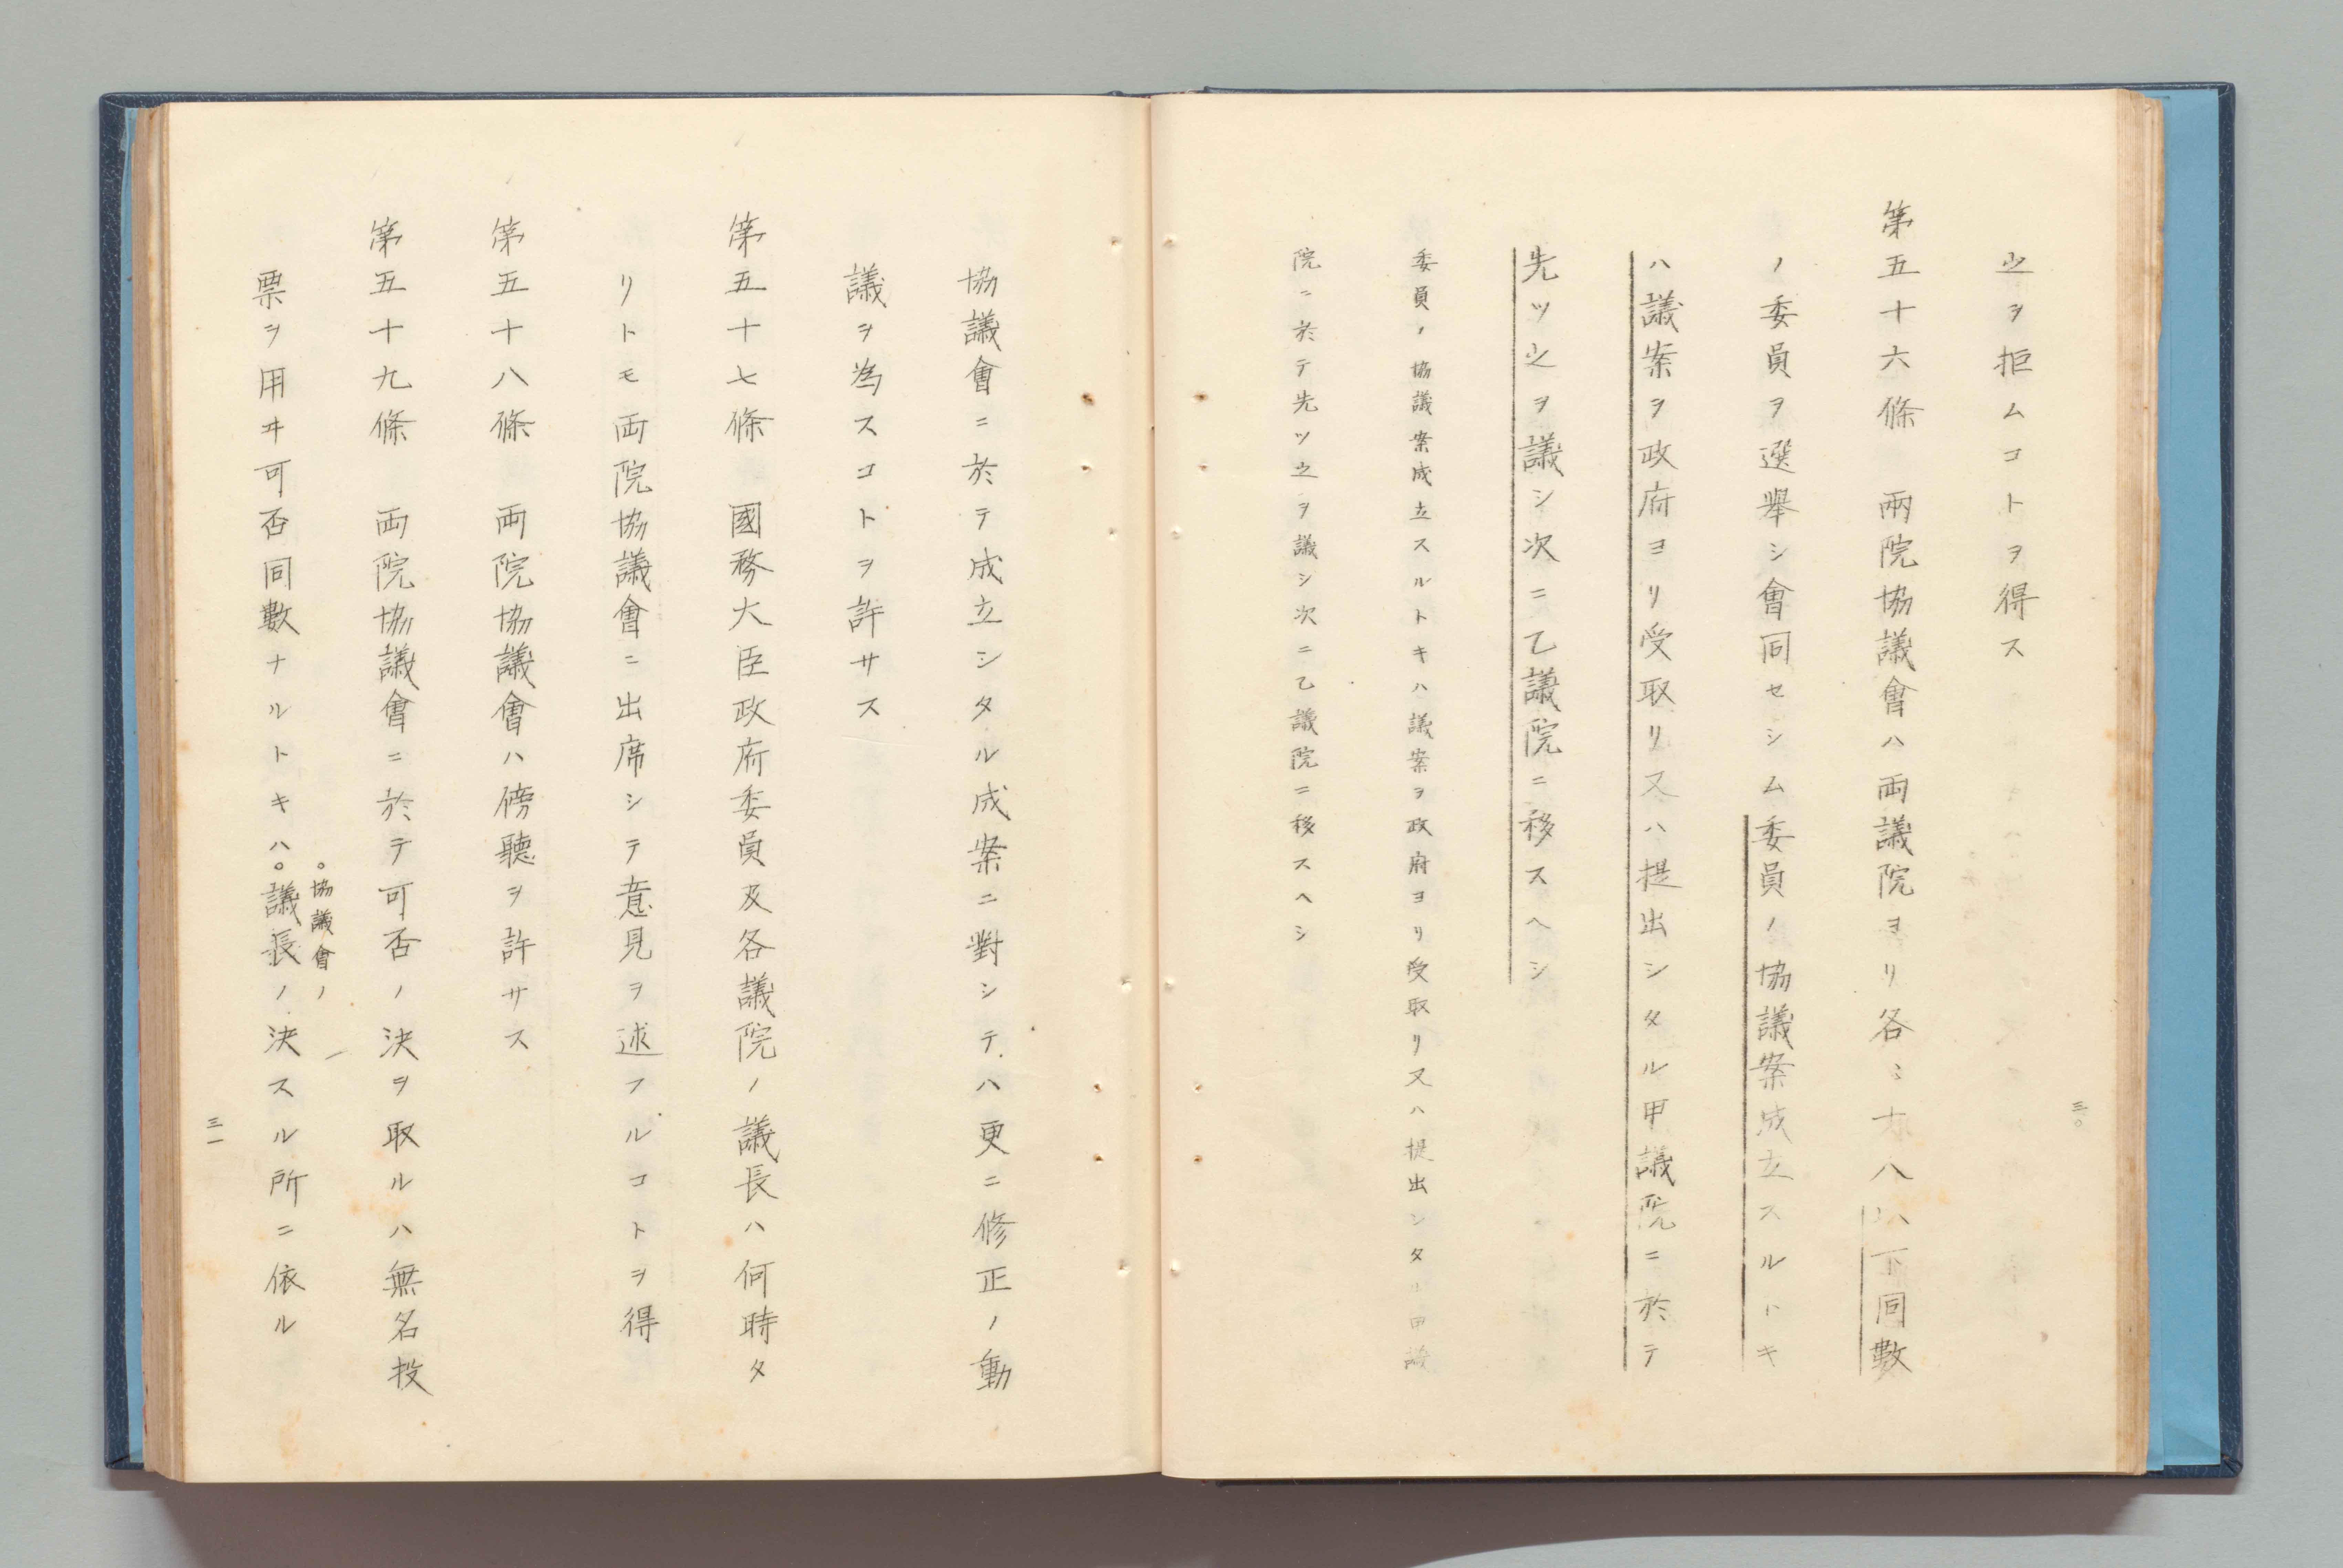 之ヲ拒ムコトヲ得ス
第五十六條 兩院協議會ハ両議院ヨリ各〻十人以下同數
ノ委員ヲ選擧シ會同セシム委員ノ協議案成立スルトキ
ハ議案ヲ政府ヨリ受取リ又ハ提出シタル甲議院ニ於テ
先ツ之ヲ議シ次ニ乙議院ニ移スヘシ
委員ノ協議案成立スルトキハ議案ヲ政府ヨリ受取リ又ハ提出シタル甲議
院ニ於テ先ツ之ヲ議シ次ニ乙議院ニ移スヘシ
三〇
協議會ニ於テ成立シタル成案ニ對シテハ更ニ修正ノ動
議ヲ為スコトヲ許サス
第五十七條 國務大臣政府委員及各議院ノ議長ハ何時タ
リトモ両院協議會ニ出席シテ意見ヲ述フルコトヲ得
第五十八條 両院協議會ハ傍聽ヲ許サス
第五十九條 両院協議會ニ於テ可否ノ決ヲ取ルハ無名投
。協議會ノ
票ヲ用ヰ可否同數ナルトキハ。議長ノ決スル所ニ依ル
三一